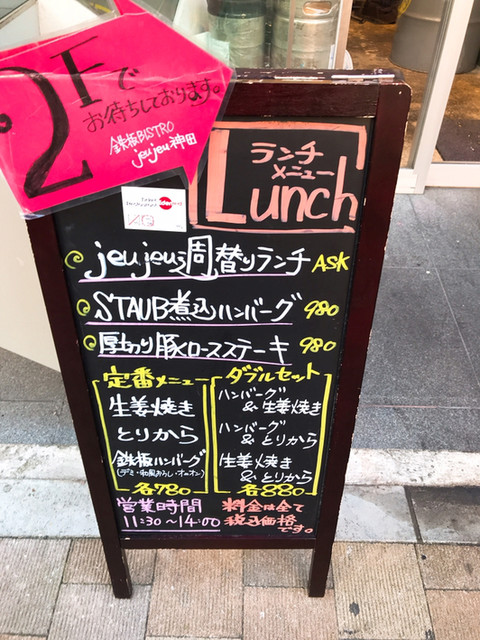 2Fで
お待ちしております。
鉄板BISTRO
jeujeu神田
ランチ
メニュー
Lunch
jeujeu's 周替りランチ ASK
STAUB煮込ハンバーグ 980
厚切り豚ロースステーキ 980
定番メニュー
生姜焼き
とりから
鉄板ハンバーグ
(デミ・和風おろし・オニオン)
各780
ダブルセット
ハンバーグ
& 生姜焼き
ハンバーグ
& とりから
生姜焼き
& とりから
各880
営業時間
11:30~14:00
料金は全て
税込価格
です。